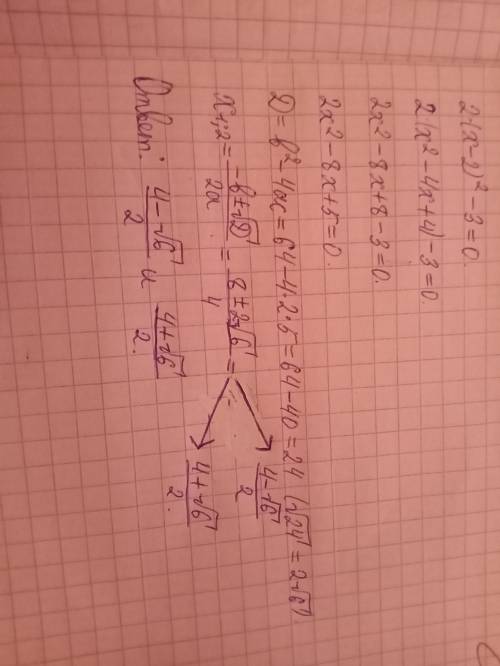 2·(x-2)² - 3 = 0.
2·(x² - 4x + 4) - 3 = 0
2x² - 8x + 8 - 3 = 0.
2x² - 8x + 5 = 0.
D = b² - 4ac = 64 - 4·2·5 = 64 - 40 = 24 (√24 = 2√6)
x₁;₂ = (-b ± √D)/2a = (8 ± 2√6)/4 = (4-√6)/2
(4+√6)/2.
Ответ: (4-√6)/2 и (4+√6)/2.